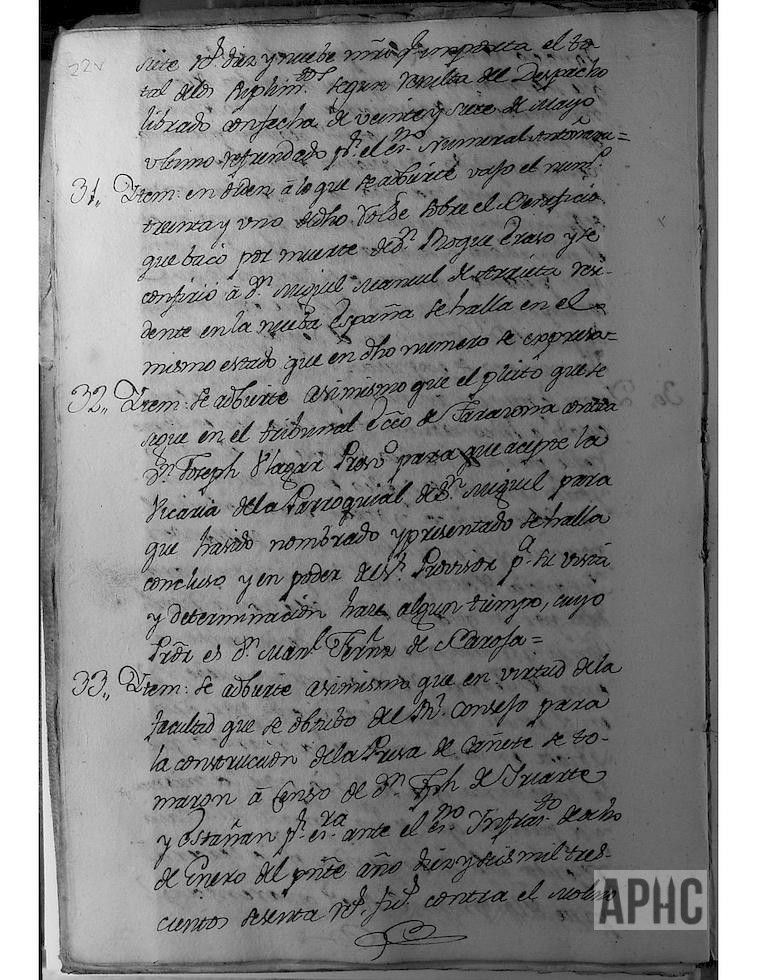 22v
siete r.s diez y nuebe mrs q.e importa el to-
tal de los segun resulta del Despacho
librado con fecha de veinte y siete de Mayo
ultimo refrendado p.r el es.no Numeral
31,, Ytem: en orden â lo que se adbierte vajo el num.o
treinta y uno dedho sobre el Beneficio
que bacó por muerte de D.n Roque Eraso y se
confirió â D.n Miguel Manuel de resi-
dente en la nueba España se halla en el
mismo estado que en dho numero se expresa=
32,, Ytem: se adbierte asimismo que el pleito que se
sigue en el tribunal ecc.o de Tarazona contra
D.n Joseph para que acepte la
Vicaria dela Parroquial de S.n Miguel para
que hasido nombrado y presentado se halla
concluso y en poder del S.r Provisor p.a su vista
y determinacion hace algun tiempo, cuyo
Prôr es D.n Man.l Fern.z de =
33,, Ytem: se adbierte asimismo que en virtud dela
facultad que se obtubo del R.l Consejo para
la construccion dela Presa de Cañete se to-
maron â Censo de D.n Jph de Yriarte
y p.r es.ra ante el es.no Ynfras.to de ocho
de Enero del pnte año diez y seis mil tres-
cientos sesenta r.s f.s contra el Molino
APHC